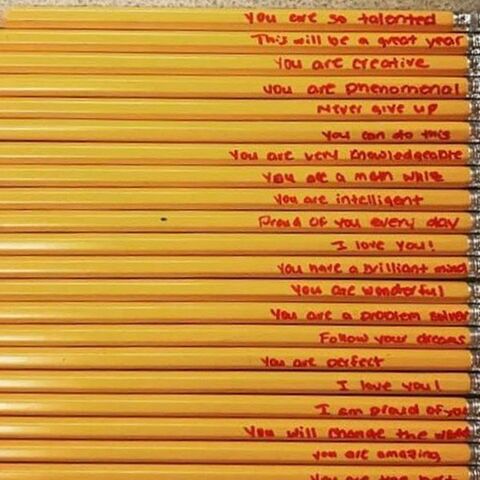 You are so talented
This will be a great year
You are creative
you are phenomenal
Never give up
You can do this
You are very knowledgeable
You are a math whiz
You are intelligent
Proud of you every day
I love you!
You have a brilliant mind
You are wonderful
You are a problem solver
Follow your dreams
You are perfect
I love you!
I am proud of you
You will change the world
you are amazing
You are the best